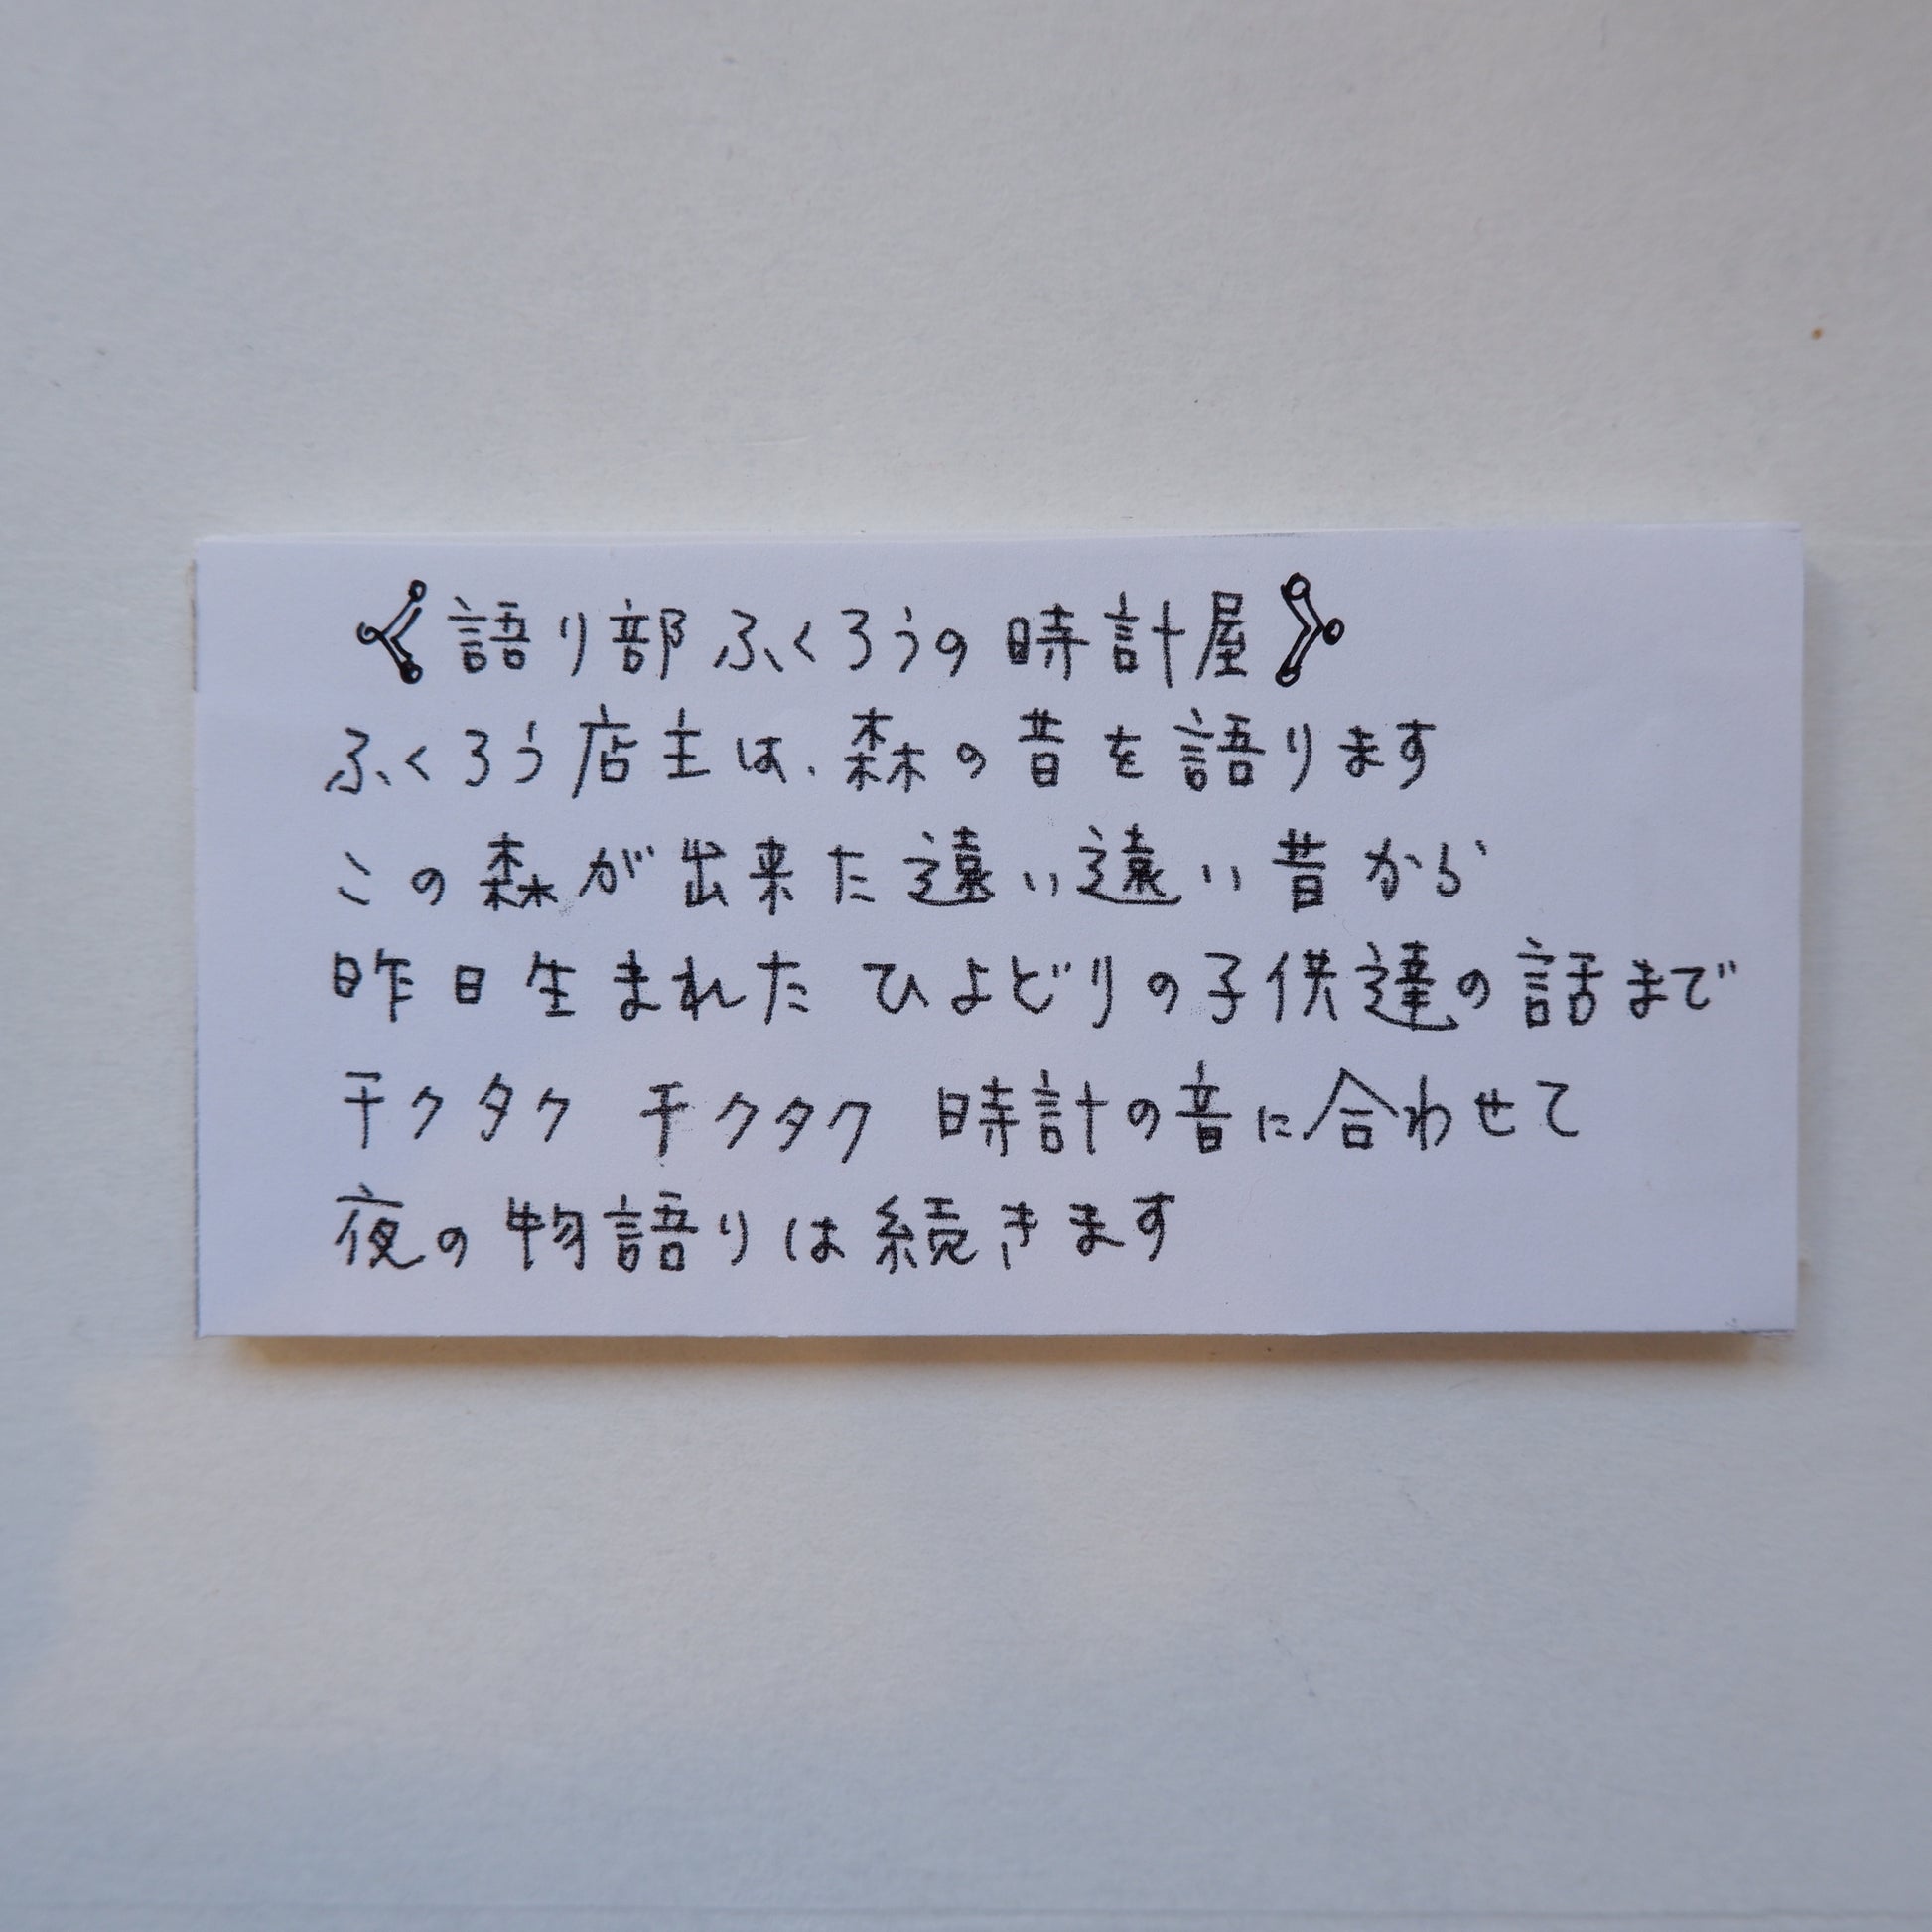 ≪語り部ふくろうの時計屋≫
ふくろう店主は、森の昔を語ります
この森が出来た遠い遠い昔から
昨日生まれたひよどりの子供達の話まで
チクタク チクタク 時計の音に合わせて
夜の物語りは続きます